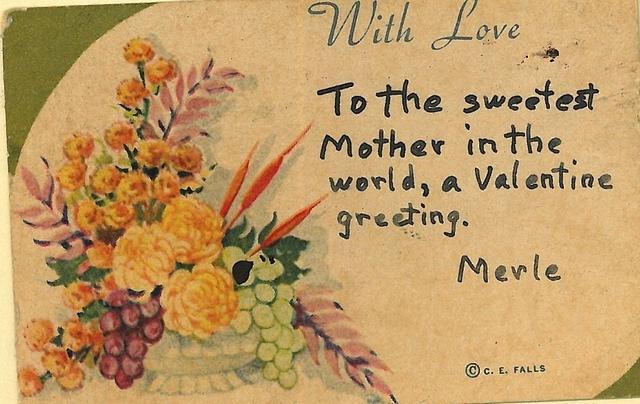 With Love
To the sweetest
Mother in the
world, a Valentine
greeting.
Merle
© C. E. FALLS